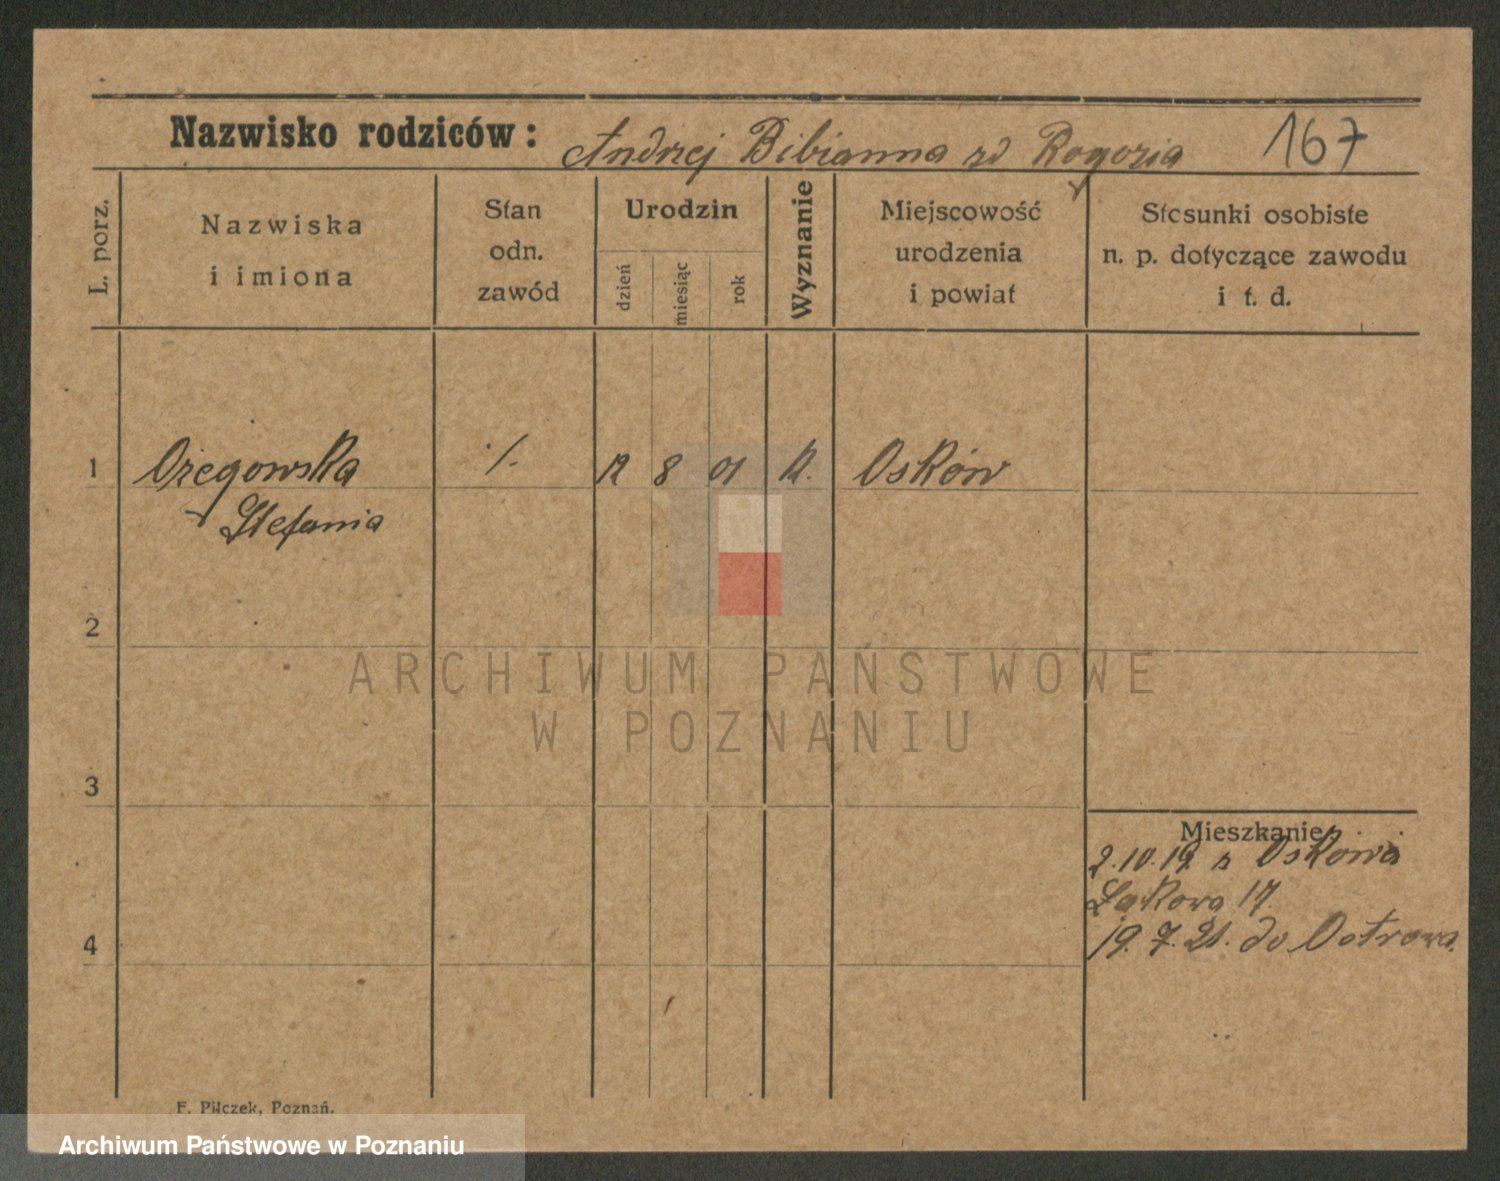 Nazwisko rodziców: Andrzej Bibianna zd Rogozia 167
L. porz.
Nazwiska
i imiona
Stan
odn.
zawód
Urodzin
dzień
miesiąc
rok
Wyznanie
Miejscowość
urodzenia
i powiat
Stosunki osobiste
n. p. dotyczące zawodu
i t. d.
1 Ożegowska ./. 12 8 01 K. Osków
Stefania
2
3
4
Mieszkanie
2.10.19 z Oskowa
Łąkowa 17
19.7.21. do Ostrowa.
F. Pilczek, Poznań.
ARCHIWUM PAŃSTWOWE
W POZNANIU
Archiwum Państwowe w Poznaniu